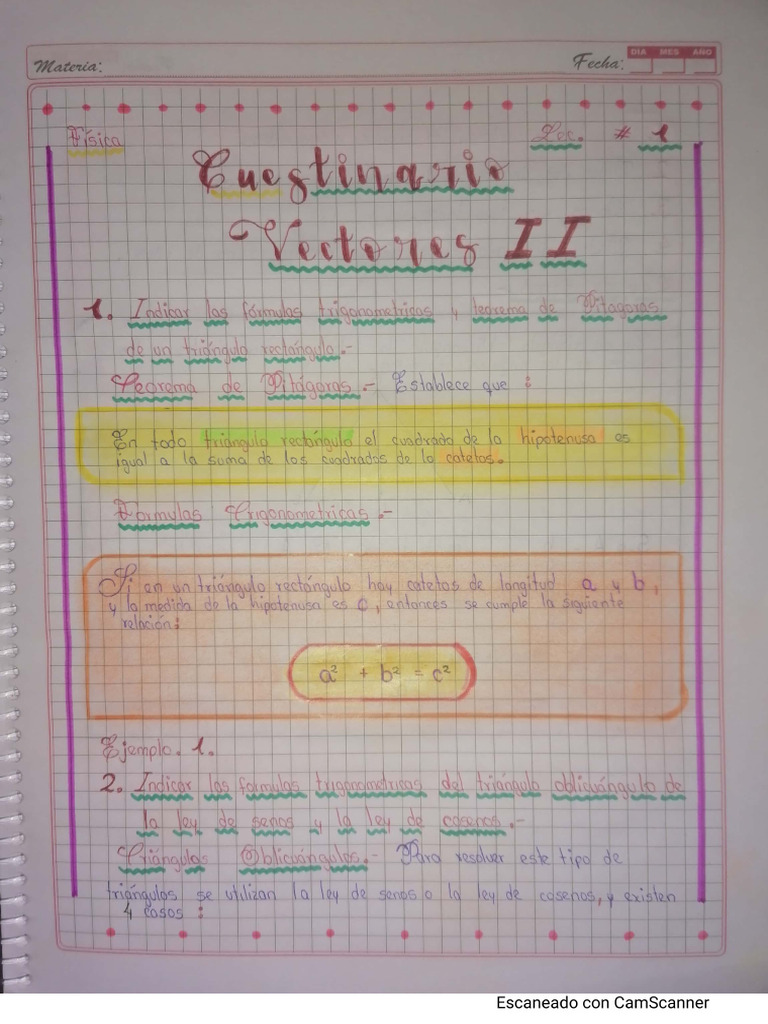 Materia:
Fecha:
DIA MES AÑO
Física
Lec. # 1
Cuestinario
Vectores II
1. Indicar las fórmulas trigonometricas y teorema de Pitagoras
de un triángulo rectángulo.-
Teorema de Pitágoras.- Establece que :
En todo triangulo rectángulo el cuadrado de la hipotenusa es
igual a la suma de los cuadrados de lo catetos.
Formulas Trigonometricas.-
Si en un triángulo rectángulo hay catetos de longitud a y b,
y la medida de la hipotenusa es c, entonces se cumple la siguiente
relación:
a² + b² = c²
Ejemplo. 1.
2. Indicar las formulas trigonometricas del triángulo oblicuángulo de
la ley de senos y la ley de cosenos.-
Triángulos Oblicuángulos.- Para resolver este tipo de
triángulos se utilizan la ley de senos o la ley de cosenos, y existen
4 casos :
Escaneado con CamScanner